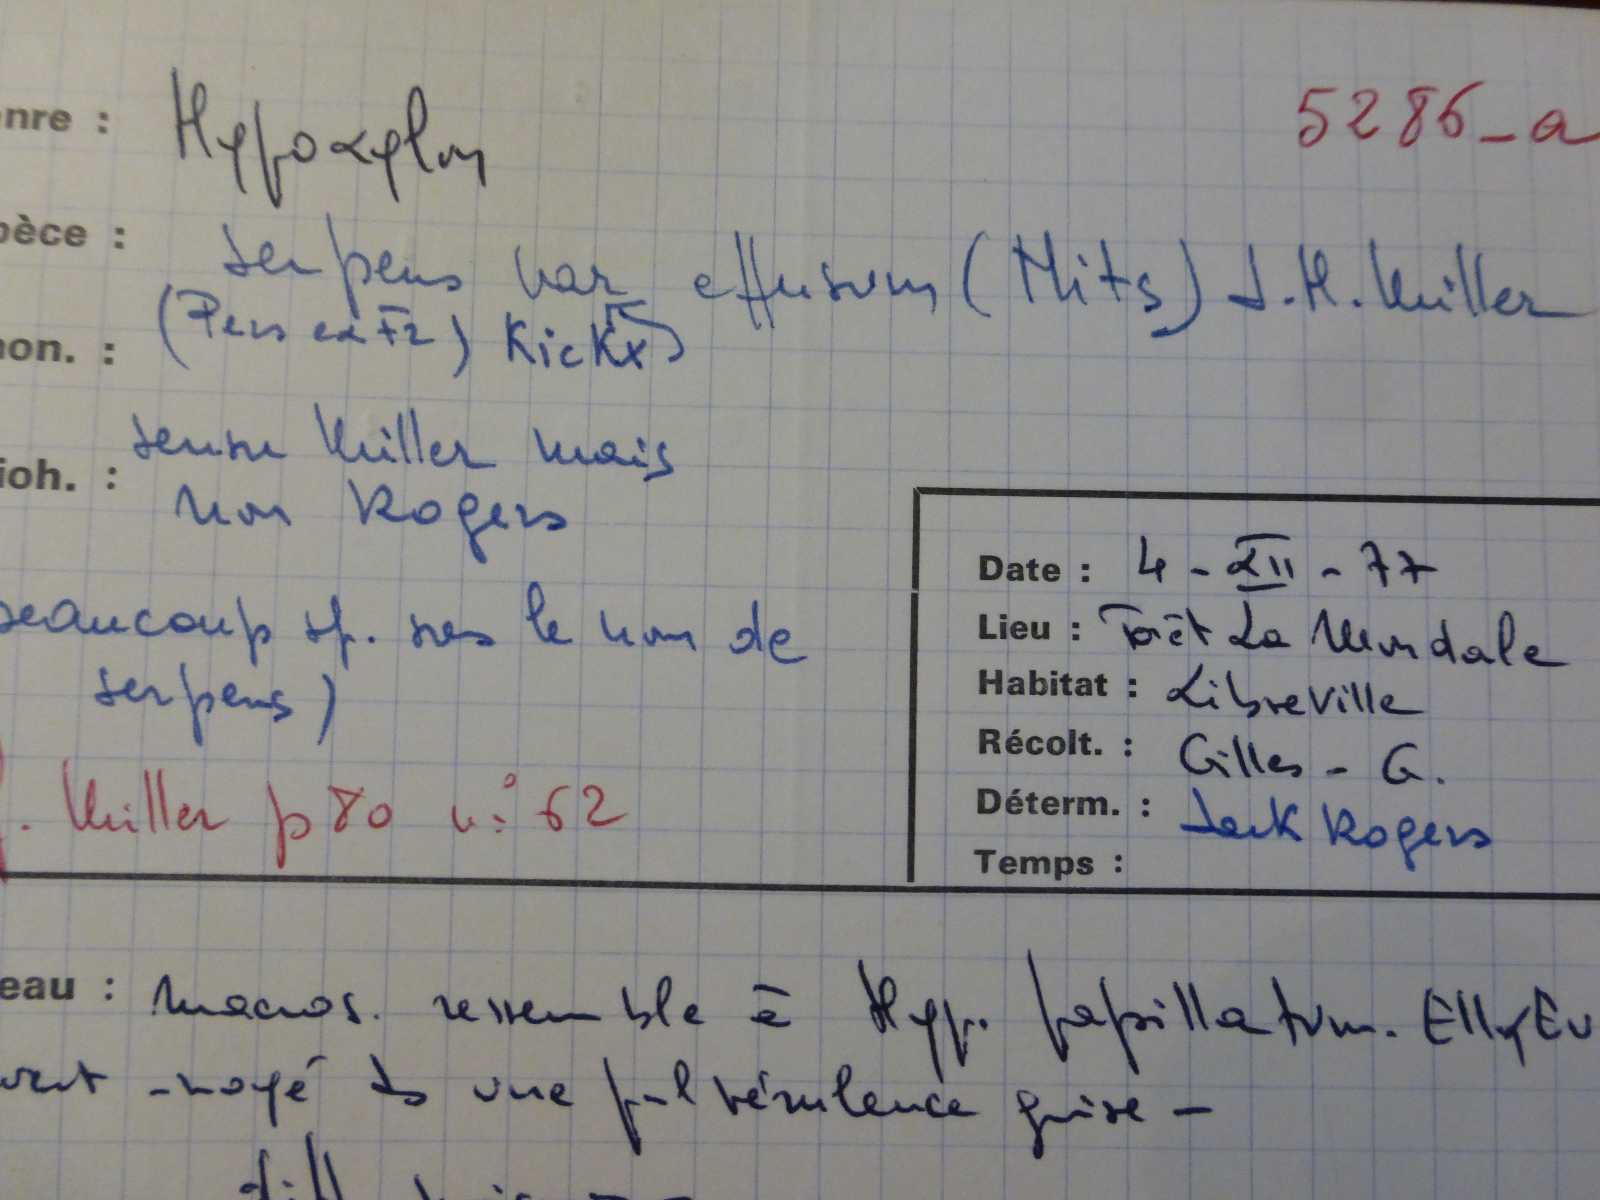 5286_a
nre : Hypoxylon
pèce : serpens var effusum (Nits) J.H. Miller
(Pers ex Fr) Kickx
non. :
sensu Miller mais
ioh. :
non Rogers
beaucoup sp. ss le nom de
serpens)
. Miller p 80 n° 62
Date : 4 - XII - 77
Lieu : Forêt La Mondale
Habitat : Libreville
Récolt. : Gilles - G.
Déterm. : Jack Rogers
Temps :
eau : Macros. ressemble à Hyp. papillatum. Ell y Ev
vent -noyé ds une pulvérulence grise -